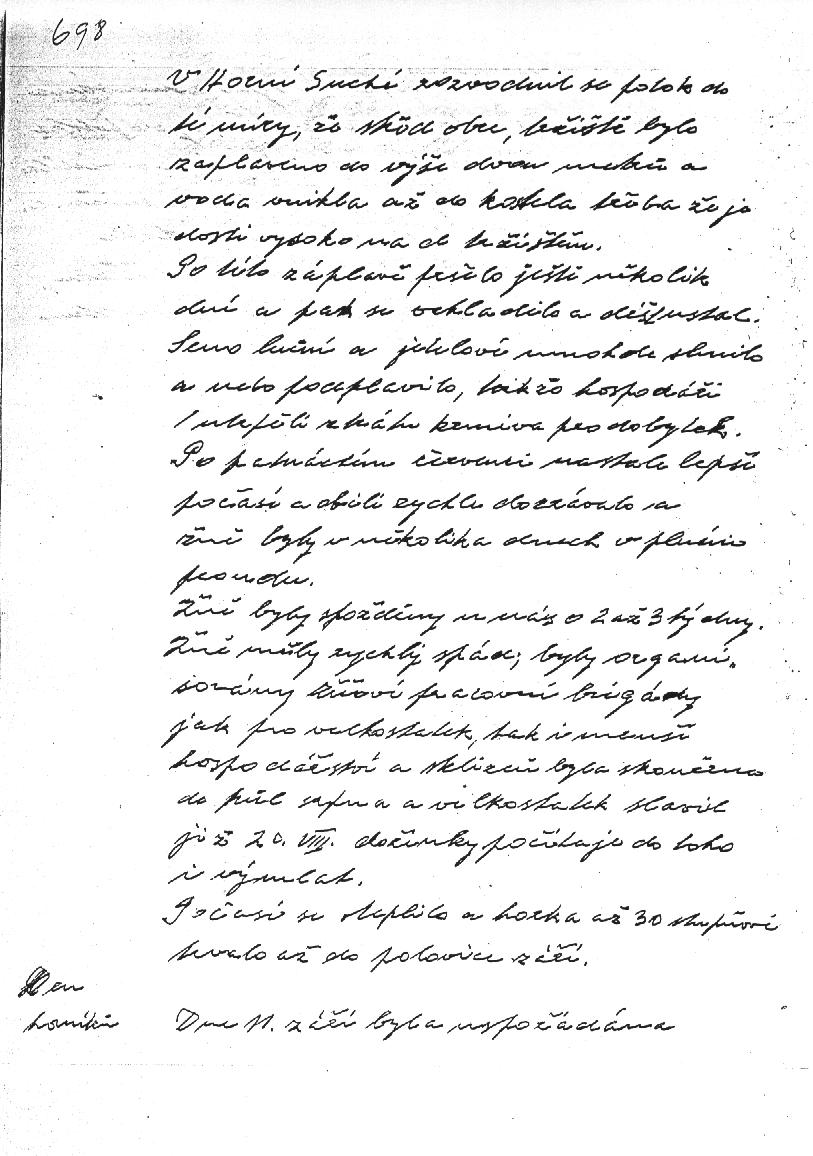 698
V Horní Suché rozvodnil se potok do
té míry, že střed obce, tržiště bylo
zaplaveno do výše dvou metrů a
voda vnikla až do kostela třeba že je
dosti vysoko nad tržištěm.
Po této záplavě pršelo ještě několik
dní a pak se ochladilo a déšť ustal.
Seno luční a jetelové mnohde shnilo
a nebo podplavilo, takže hospodáři
utrpěli ztrátu krmiva pro dobytek.
Po patnáctém červenci nastalo lepší
počasí a obilí rychle dozrávalo a
žně byly v několika dnech v plném
proudu.
Žně byly spožděny u nás o 2 až 3 týdny.
Žně měly rychlý spád; byly organi„
sovány žňové pracovní brigády
jak pro velkostatek, tak i menší
hospodářství a sklizeň byla skončena
do půl srpna a velkostatek slavil
již 20. VIII. dožinky počítaje do toho
i výmlat.
Počasí se oteplilo a horka až 30 stupňové
trvalo až do polovice září.
Den
horníků Dne 11. září byla uspořádána